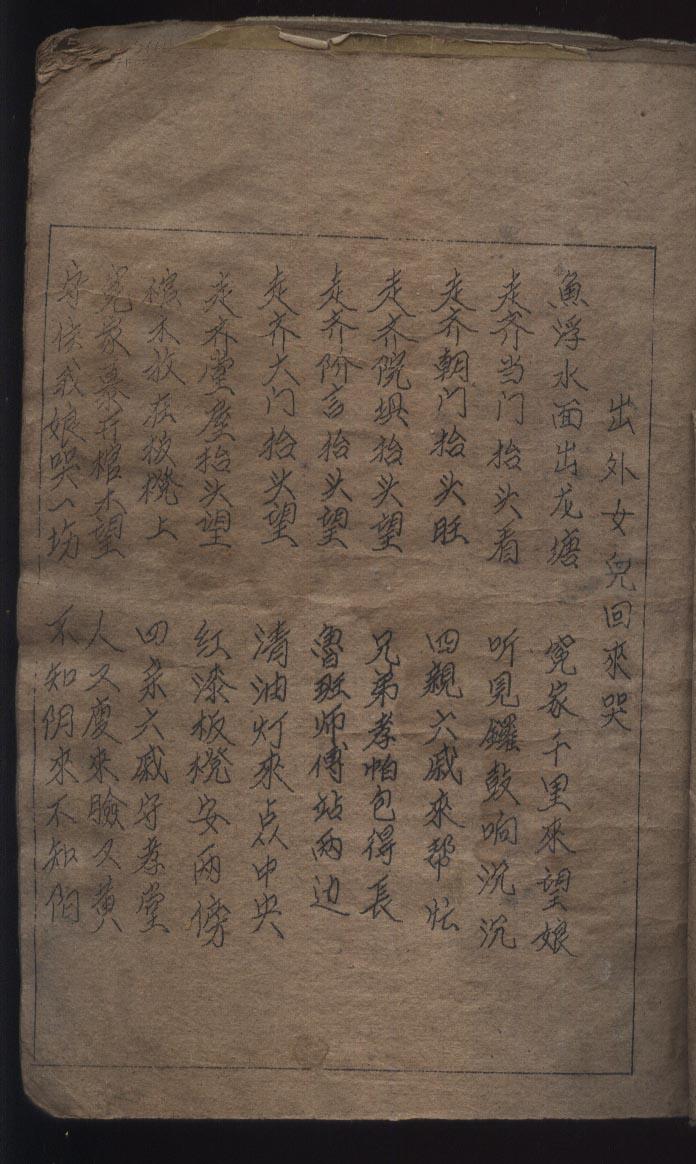 出外女兒回來哭
魚浮水面出龙塘 冤家千里來望娘
走齐当门抬头看 听见鑼鼓响沉沉
走齐朝门抬头旺 四親六戚來帮忙
走齐院埧抬头望 兄弟孝帕包得長
走齐阶言抬头望 魯班师傅站两边
走齐大门抬头望 清油灯來点中央
走齐堂屋抬头望 红漆板櫈安兩傍
棺木放在板櫈上 四亲六戚守孝堂
冤家幕开棺木望 人又廋來臉又黄
守住我娘哭一场 不知阴來不知阳